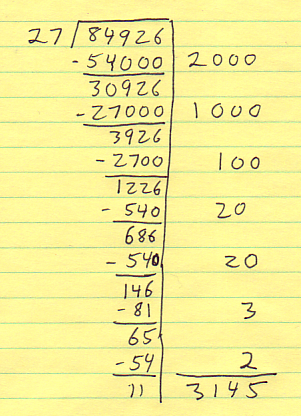 27 84926
-54000 2000
30926
-27000 1000
3926
-2700 100
1226
-540 20
686
-540 20
146
-81 3
65
-54 2
11 3145